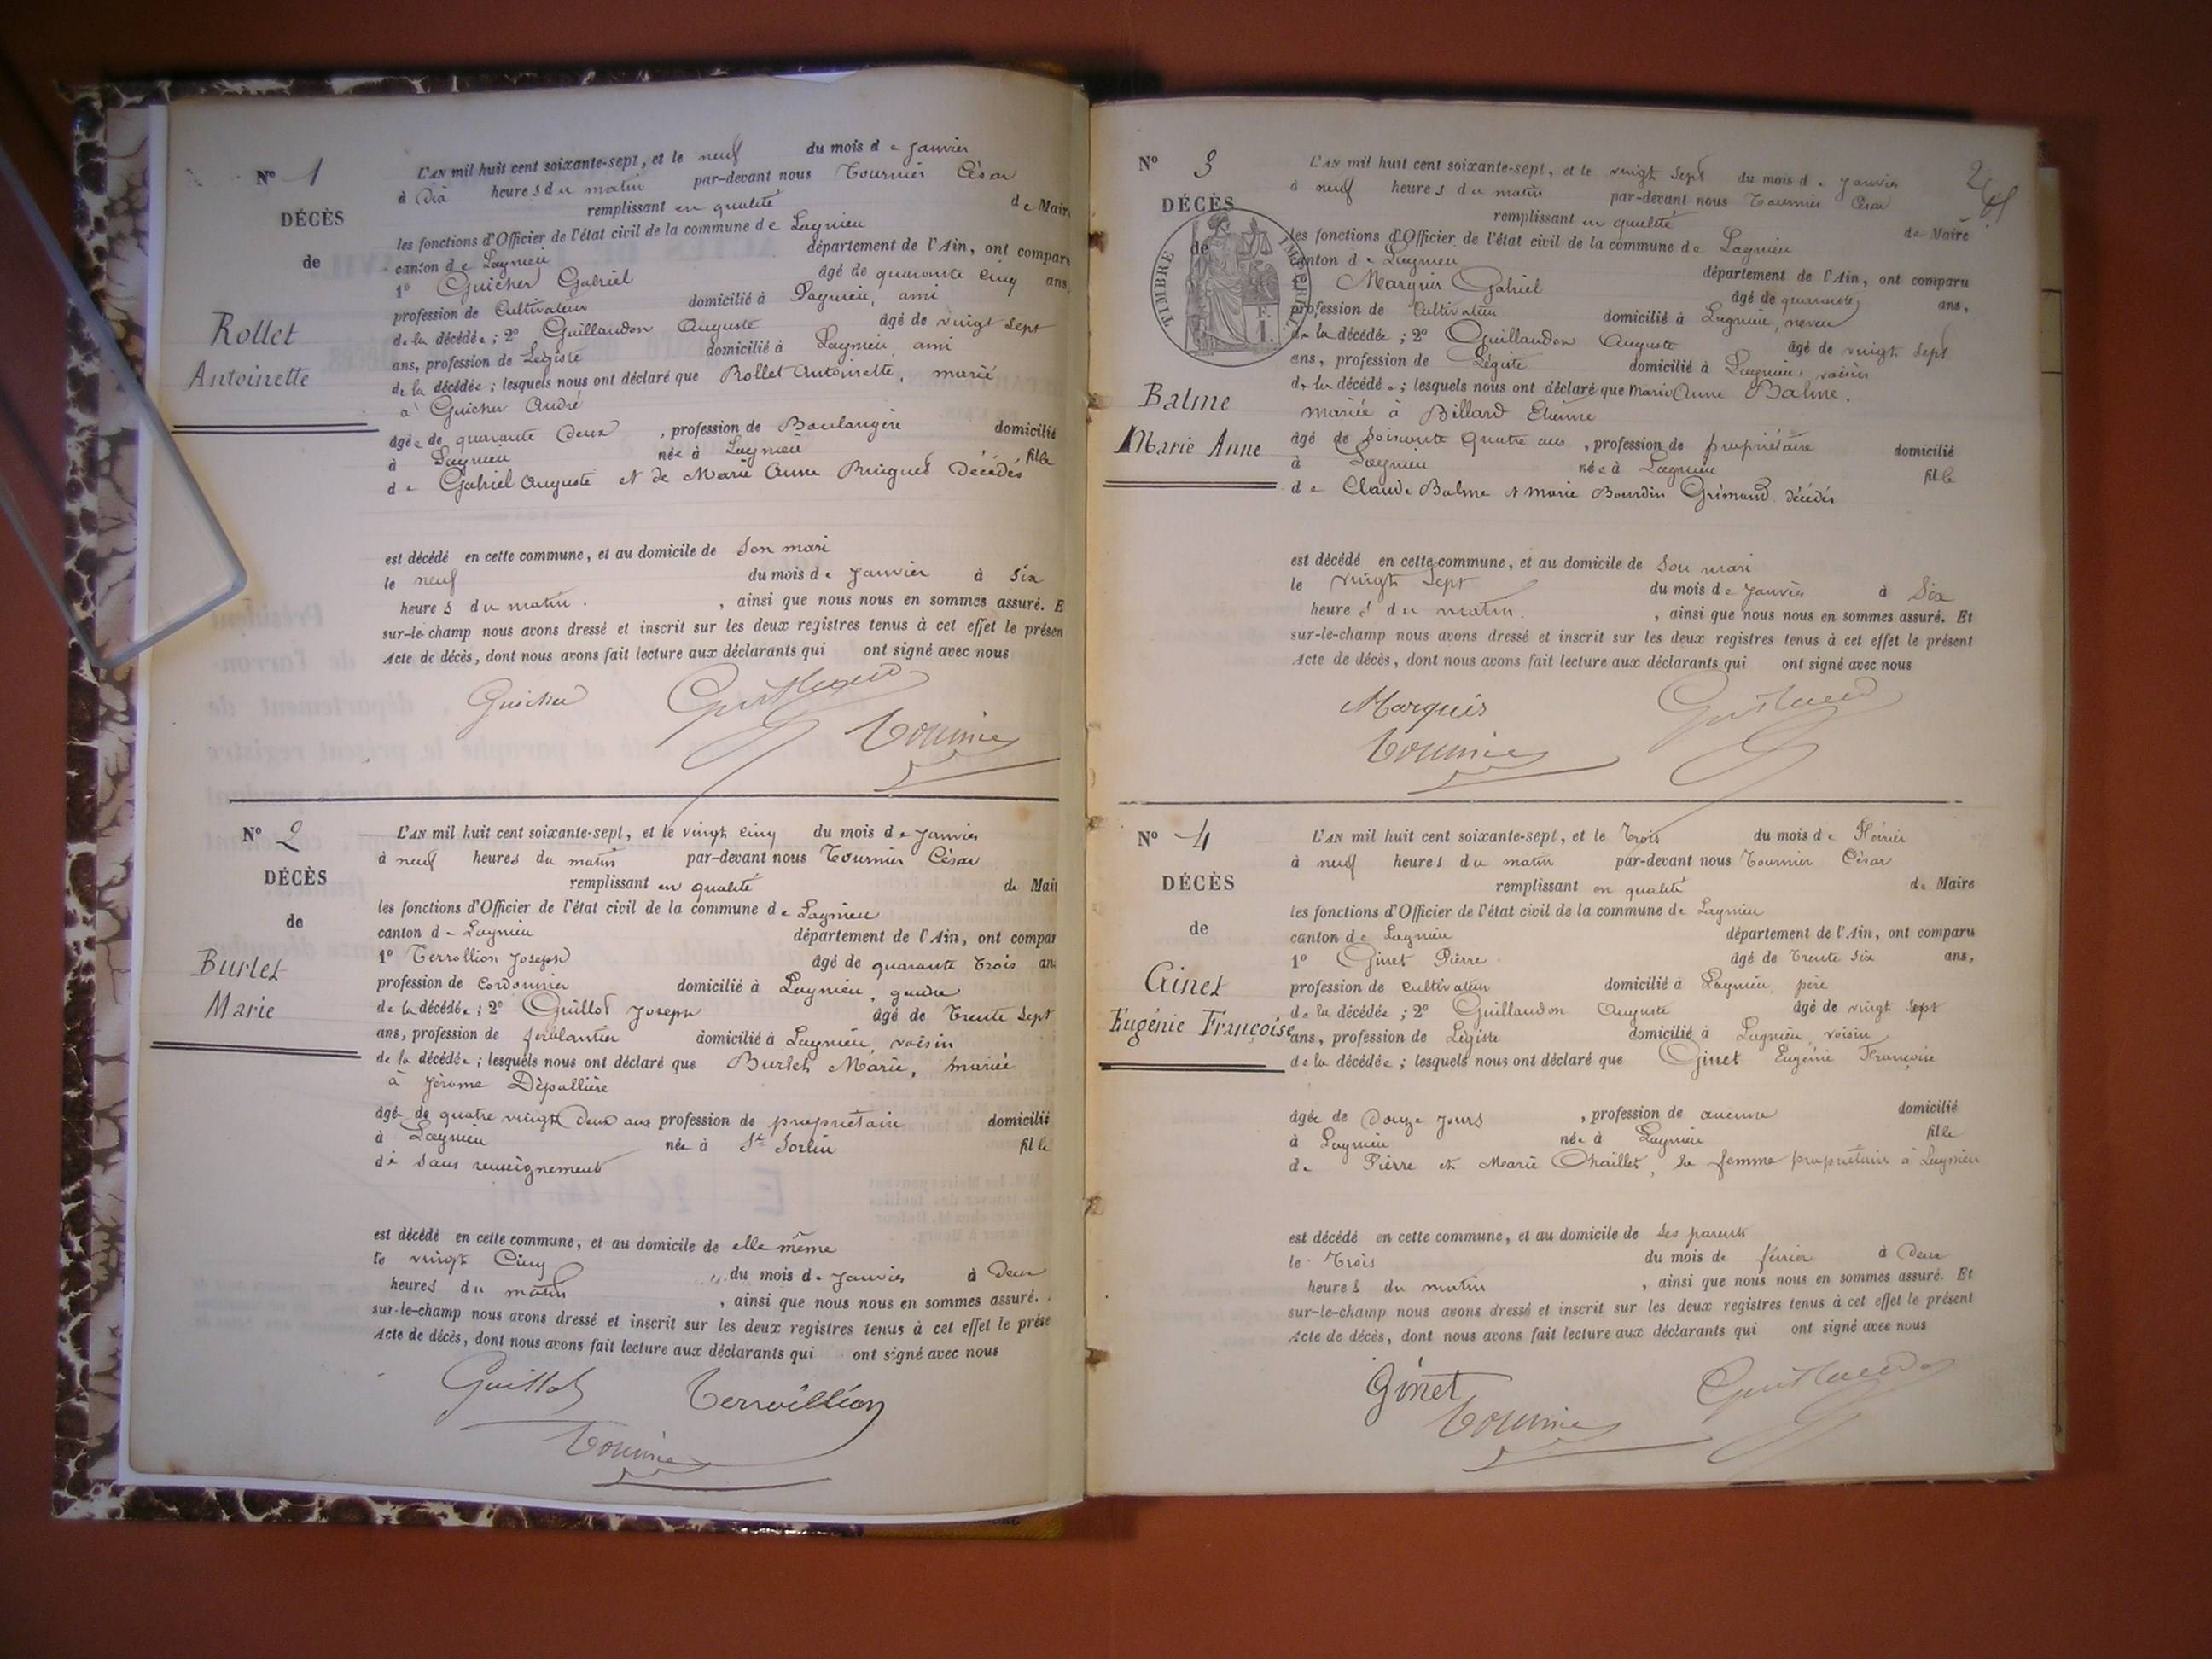 N° 1
DÉCÈS
de
Rollet
Antoinette
L'AN mil huit cent soixante-sept, et le neuf du mois de Janvier
à Dix heures du matin par-devant nous Tournier César
remplissant en qualité de Maire
les fonctions d'Officier de l'état civil de la commune de Lagnieu
canton de Lagnieu département de l'Ain, ont compar
1° Guicher Gabriel âgé de quarante cinq ans
profession de Cultivateur domicilié à Lagnieu, ami
de la décédée ; 2° Guillaudon Auguste âgé de vingt sept
ans, profession de Légiste domicilié à Lagnieu, ami
de la décédée ; lesquels nous ont déclaré que Rollet Antoinette, marié
à Guicher André
âgée de quarante deux , profession de Boulangère domicilié
à Lagnieu née à Lagnieu fille
de Gabriel Auguste et de Marie Anne décédés
est décédé en cette commune, et au domicile de Son mari
le neuf du mois de Janvier à Six
heures du matin. , ainsi que nous nous en sommes assuré. E
sur-le-champ nous avons dressé et inscrit sur les deux registres tenus à cet effet le présen
Acte de décès, dont nous avons fait lecture aux déclarants qui ont signé avec nous
Guicher
Tournier
N° 2
DÉCÈS
de
Burlet
Marie
L'AN mil huit cent soixante-sept, et le vingt cinq du mois de Janvier
à neuf heures du matin par-devant nous Tournier César
remplissant en qualité de Mair
les fonctions d'Officier de l'état civil de la commune de Lagnieu
canton de Lagnieu département de l'Ain, ont compar
1° Terrollion Joseph âgé de quarante Trois an
profession de Cordonnier domicilié à Lagnieu, gendre
de la décédée ; 2° Guillot Joseph âgé de Trente Sept
ans, profession de ferblantier domicilié à Lagnieu, voisin
de la décédée ; lesquels nous ont déclaré que Burlet Marie, mariée
à Jérome Dépallière
âgée de quatre vingt Deux ans profession de propriétaire domicilié
à Lagnieu née à St Sorlin fille
de sans renseignements
est décédé en cette commune, et au domicile de elle même
le vingt Cinq du mois de Janvier à Deux
heures du matin , ainsi que nous nous en sommes assuré.
sur-le-champ nous avons dressé et inscrit sur les deux registres tenus à cet effet le prése
Acte de décès, dont nous avons fait lecture aux déclarants qui ont signé avec nous
Guillot Terroillion
Tournier
N° 3
DÉCÈS
de
TIMBRE IMPERIAL
F.
1.
Balme
Marie Anne
L'AN mil huit cent soixante-sept, et le vingt sept du mois de Janvier
à neuf heures du matin par-devant nous Tournier César
remplissant en qualité de Maire
les fonctions d'Officier de l'état civil de la commune de Lagnieu
canton de Lagnieu département de l'Ain, ont comparu
Marquis Gabriel âgé de quarante ans,
profession de Cultivateur domicilié à Lagnieu, neveu
de la décédée ; 2° Guillaudon Auguste âgé de vingt Sept
ans, profession de Légiste domicilié à Lagnieu, voisin
de la décédée ; lesquels nous ont déclaré que Marie Anne Balme,
mariée à Billard Etienne
âgé de Soixante Quatre ans , profession de propriétaire domicilié
à Lagnieu née à Lagnieu fille
de Claude Balme et Marie Bourdin Grimaud décédés
est décédé en cette commune, et au domicile de Son mari
le vingt Sept du mois de Janvier à Six
heures du matin. , ainsi que nous nous en sommes assuré. Et
sur-le-champ nous avons dressé et inscrit sur les deux registres tenus à cet effet le présent
Acte de décès, dont nous avons fait lecture aux déclarants qui ont signé avec nous
Marquis
Tournier
N° 4
DÉCÈS
de
Ginet
Eugénie Françoise
L'AN mil huit cent soixante-sept, et le Trois du mois de Février
à neuf heures du matin par-devant nous Tournier César
remplissant en qualité de Maire
les fonctions d'Officier de l'état civil de la commune de Lagnieu
canton de Lagnieu département de l'Ain, ont comparu
1° Ginet Pierre âgé de Trente Six ans,
profession de Cultivateur domicilié à Lagnieu, père
de la décédée ; 2° Guillaudon Auguste âgé de vingt Sept
ans, profession de Légiste domicilié à Lagnieu, voisin
de la décédée ; lesquels nous ont déclaré que Ginet Eugénie Françoise
âgée de Douze Jours , profession de aucune domicilié
à Lagnieu née à Lagnieu fille
de Pierre et Marie Chaillet, sa femme propriétaire à Lagnieu
est décédé en cette commune, et au domicile de Ses parents
le Trois du mois de février à Deux
heures du matin , ainsi que nous nous en sommes assuré. Et
sur-le-champ nous avons dressé et inscrit sur les deux registres tenus à cet effet le présent
Acte de décès, dont nous avons fait lecture aux déclarants qui ont signé avec nous
Ginet
Tournier